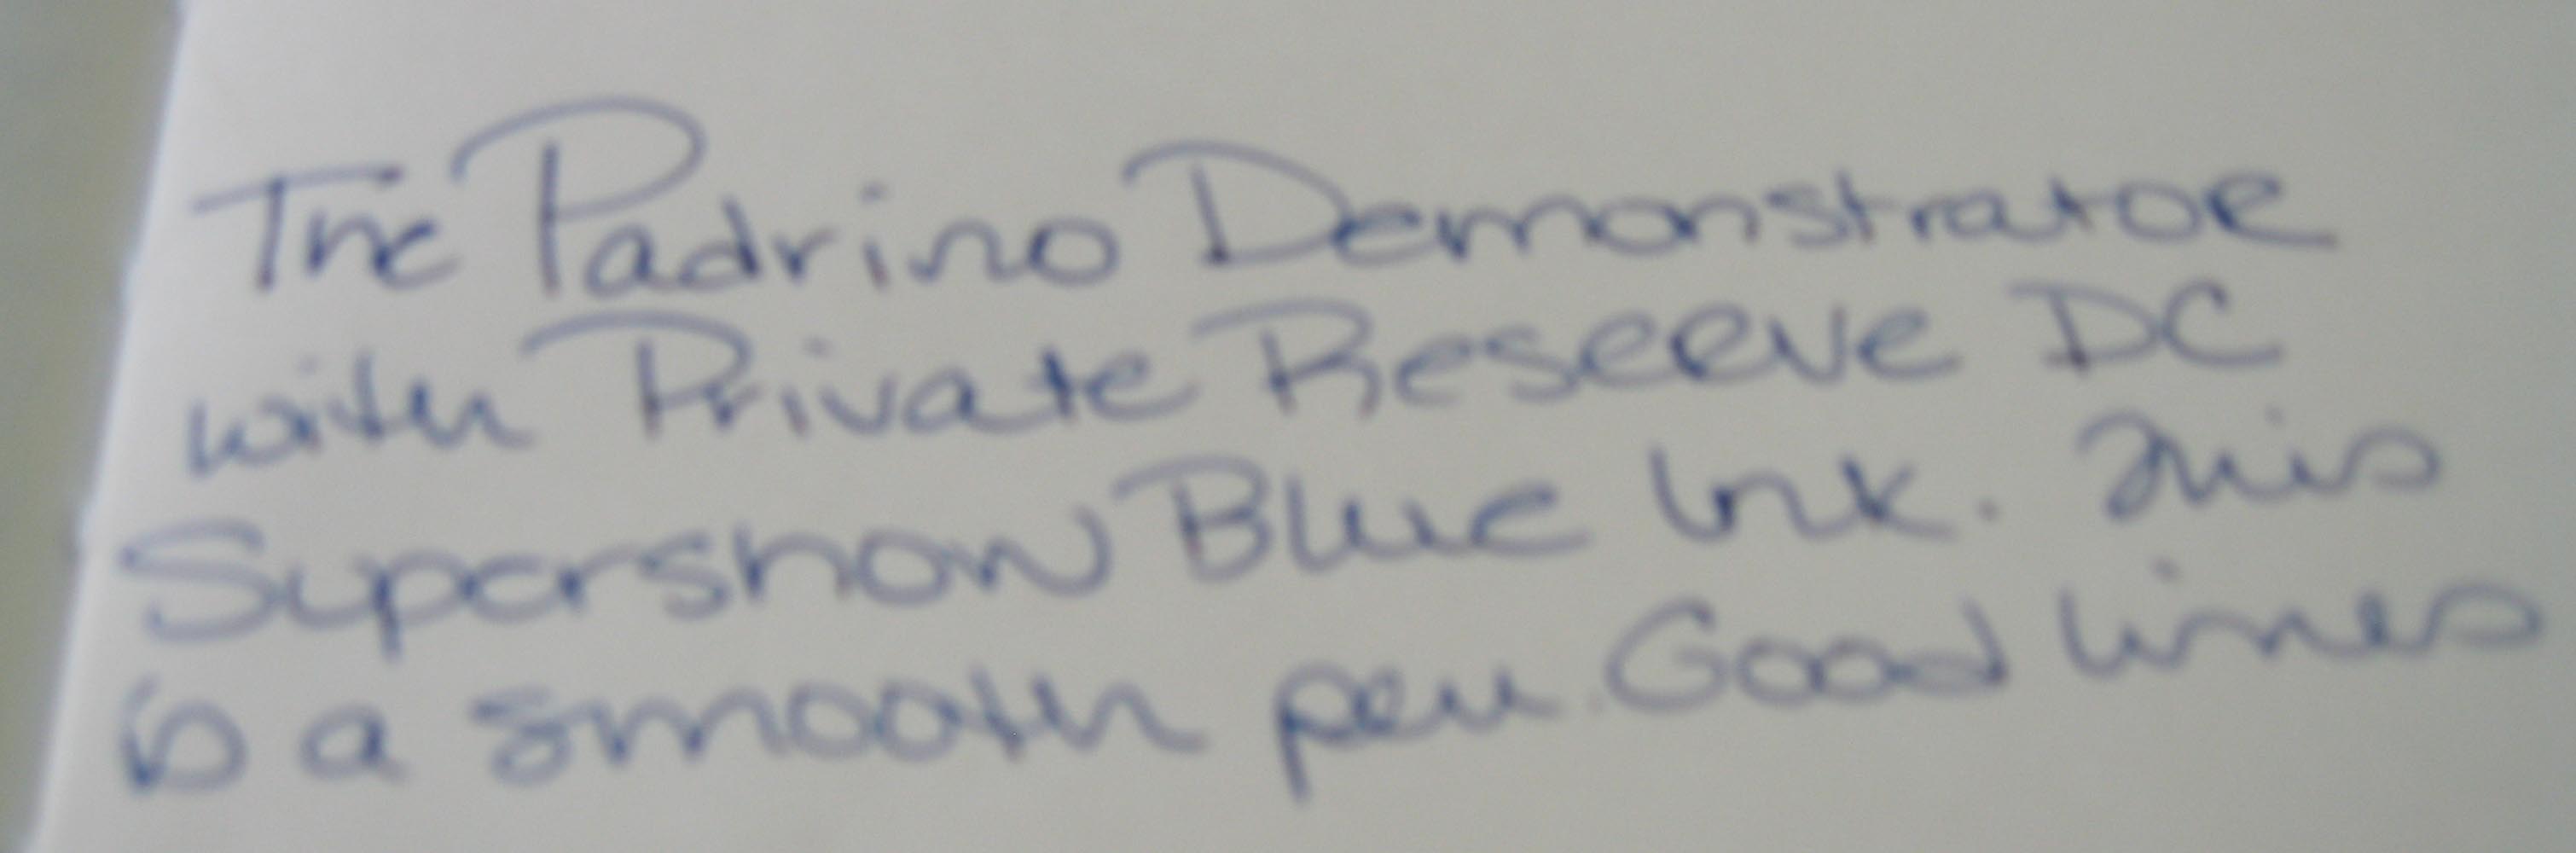 The Padrino Demonstrator
with Private Reserve DC
Supershow Blue Ink. This
is a smooth pen. Good lines